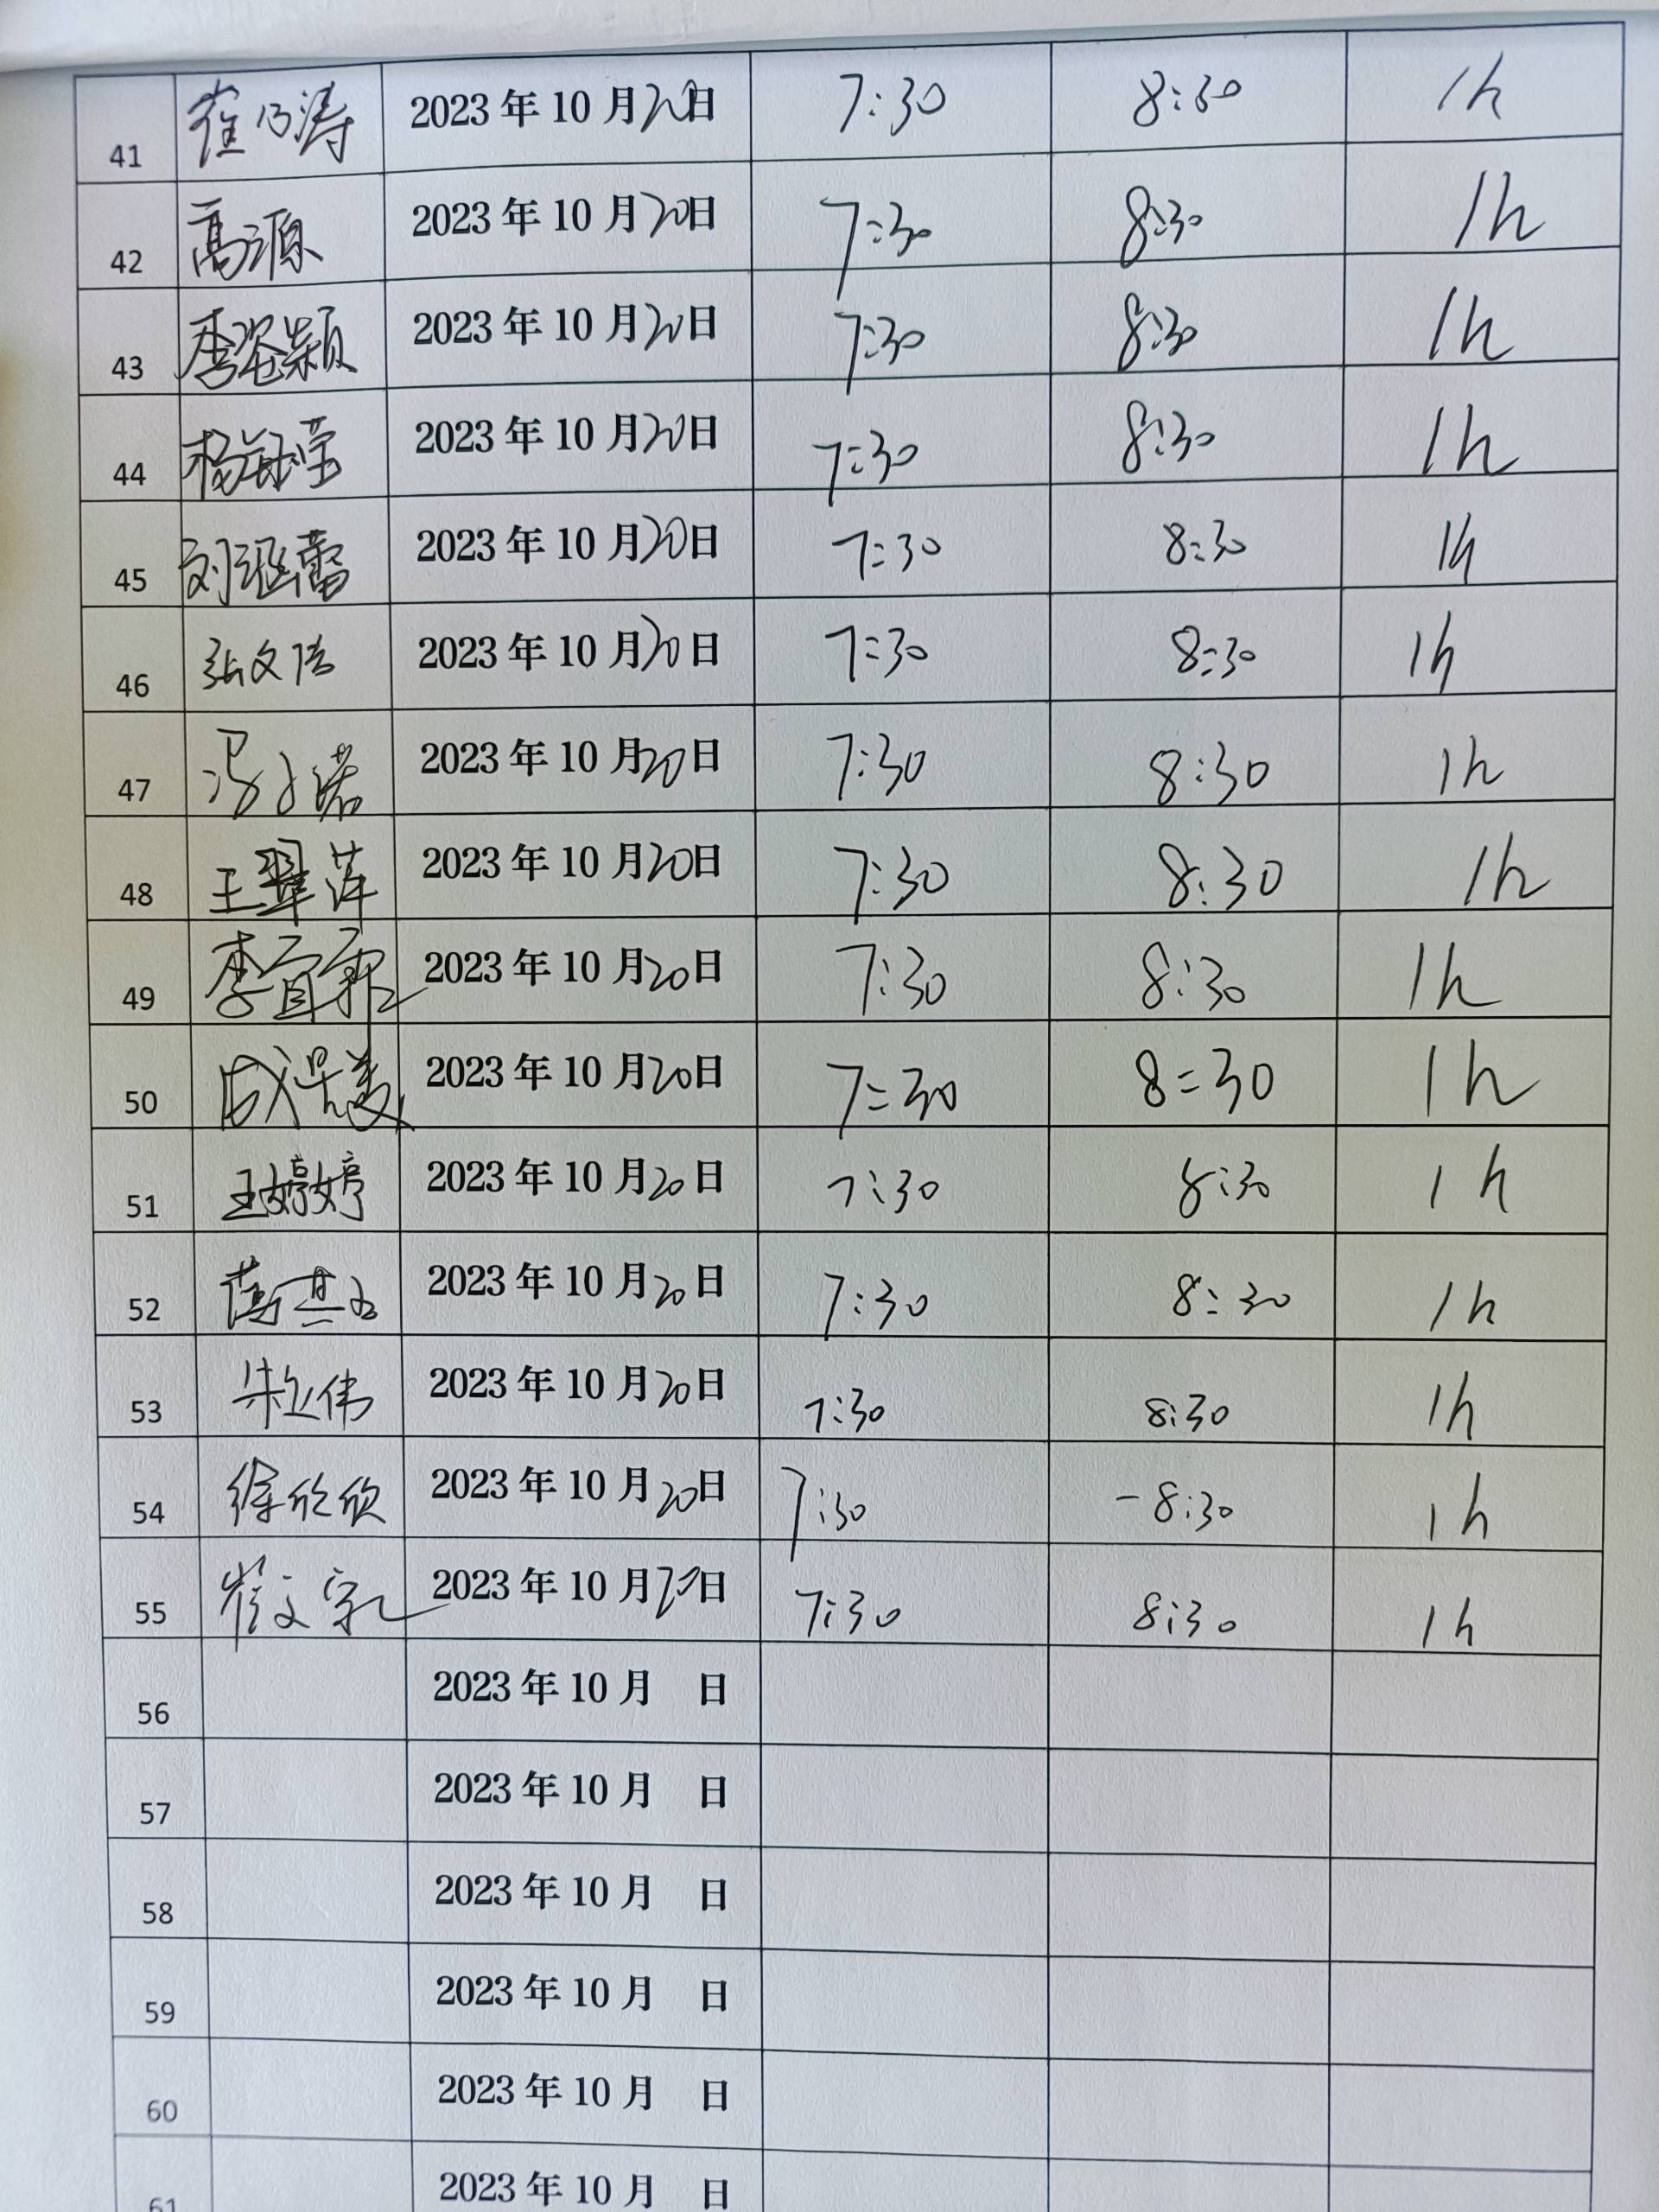 41 崔乃涛 2023 年 10 月 20 日 7:30 8:30 1h
42 高源 2023 年 10 月 20 日 7:30 8:30 1h
43 李姿颖 2023 年 10 月 20 日 7:30 8:30 1h
44 杨钰莹 2023 年 10 月 20 日 7:30 8:30 1h
45 刘涵蕾 2023 年 10 月 20 日 7:30 8:30 1h
46 张文洁 2023 年 10 月 20 日 7:30 8:30 1h
47 冯子诺 2023 年 10 月 20 日 7:30 8:30 1h
48 王翠萍 2023 年 10 月 20 日 7:30 8:30 1h
49 李宜 2023 年 10 月 20 日 7:30 8:30 1h
50 2023 年 10 月 20 日 7:30 8:30 1h
51 王婷婷 2023 年 10 月 20 日 7:30 8:30 1h
52 2023 年 10 月 20 日 7:30 8:30 1h
53 朱立伟 2023 年 10 月 20 日 7:30 8:30 1h
54 徐欣欣 2023 年 10 月 20 日 7:30 -8:30 1h
55 崔文 2023 年 10 月 20 日 7:30 8:30 1h
56 2023 年 10 月 日
57 2023 年 10 月 日
58 2023 年 10 月 日
59 2023 年 10 月 日
60 2023 年 10 月 日
61 2023 年 10 月 日